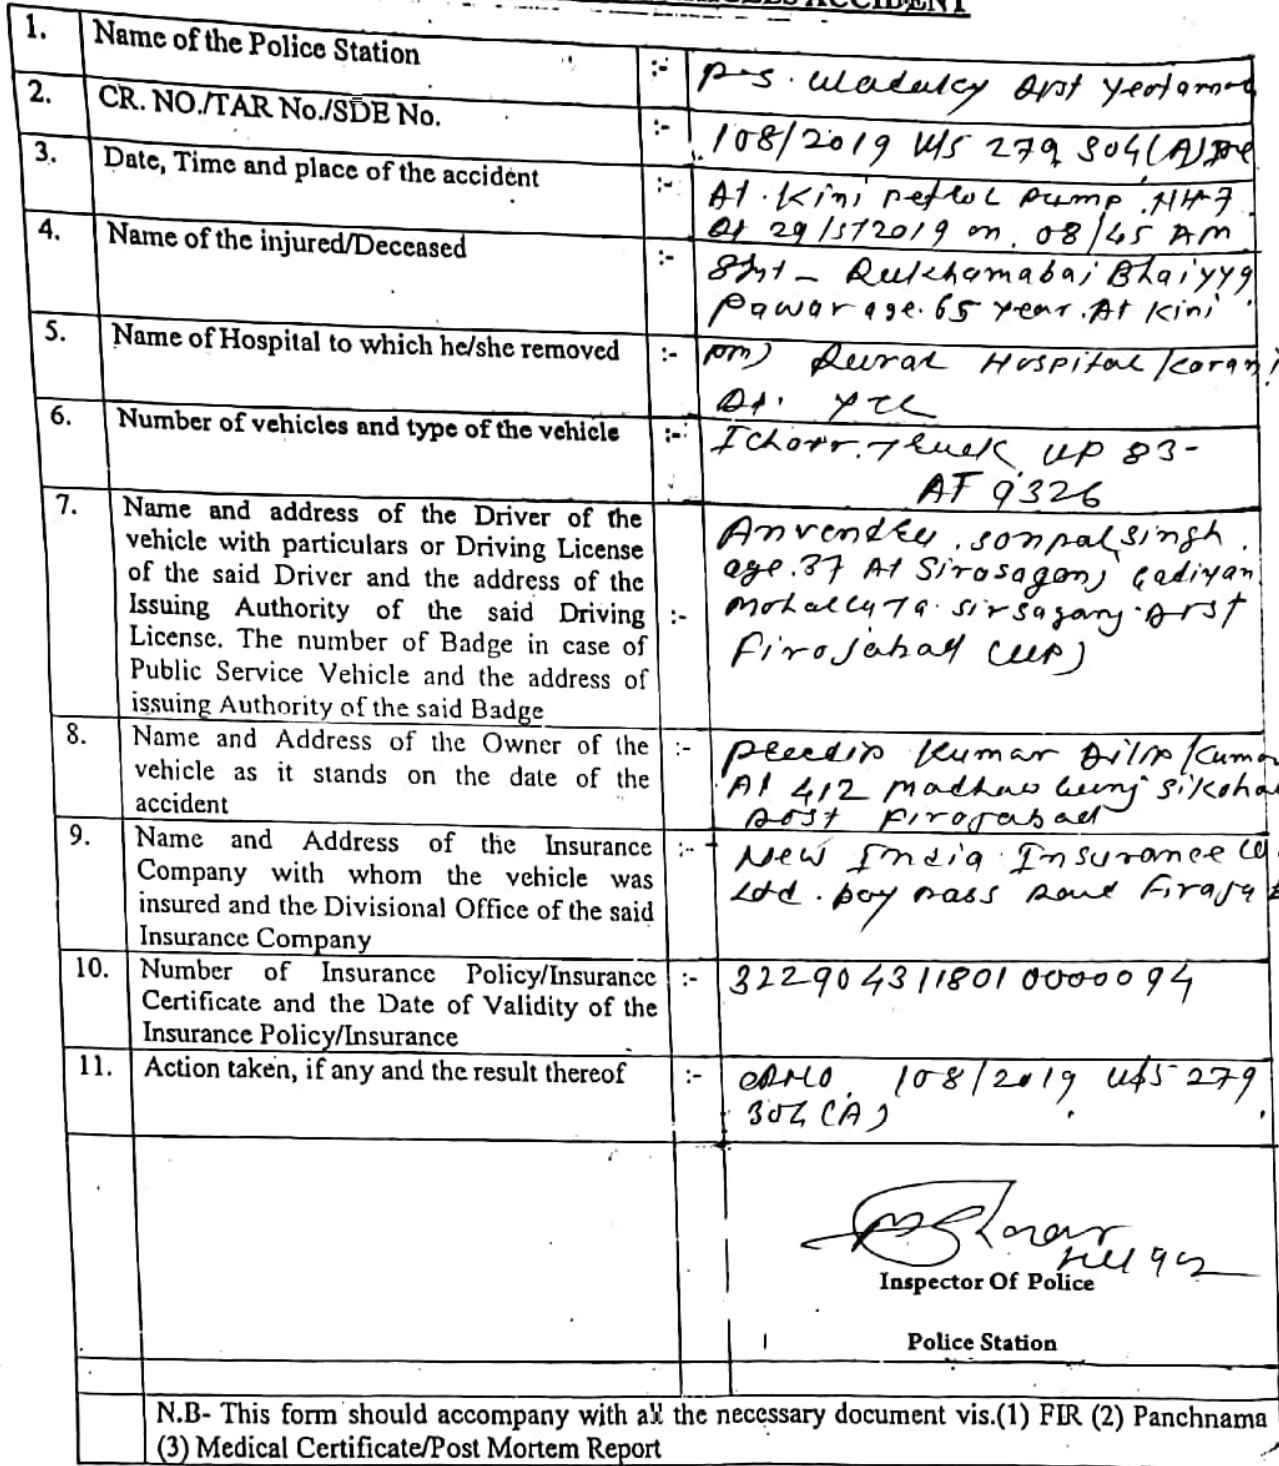 ACCIDENT
1. Name of the Police Station :- P.S. Wadaky Dist Yeotamal
2. CR. NO./TAR No./SDE No. :- 108/2019 U/S 279, 304(A) IPC
3. Date, Time and place of the accident :- At. Kini petrol pump. NH-7.
Dt 29/5/2019 on. 08/45 AM
4. Name of the injured/Deceased :- Smt - Rukhamabai Bhaiyya
Pawar age. 65 year. At Kini
5. Name of Hospital to which he/she removed :- pm) Rural Hospital Karanji
Dt. YTL
6. Number of vehicles and type of the vehicle :- Ichorr. Truck UP 83-
AT 9326
7. Name and address of the Driver of the
vehicle with particulars or Driving License
of the said Driver and the address of the
Issuing Authority of the said Driving
License. The number of Badge in case of
Public Service Vehicle and the address of
issuing Authority of the said Badge
:- sonpal singh.
age. 37 At Sirosaganj
Mohalla Ta. Sirsaganj. Dist
Firojabad (UP)
8. Name and Address of the Owner of the
vehicle as it stands on the date of the
accident
:- Kumar Dilip Kumar
At 412 Madhav
Dist Firojabad
9. Name and Address of the Insurance
Company with whom the vehicle was
insured and the Divisional Office of the said
Insurance Company
:- New India Insurance Co.
Ltd. bay pass Road
10. Number of Insurance Policy/Insurance
Certificate and the Date of Validity of the
Insurance Policy/Insurance
:- 32290431180100000094
11. Action taken, if any and the result thereof :- 108/2019 U/S 279
304 (A)
Inspector Of Police
Police Station
N.B- This form should accompany with all the necessary document vis.(1) FIR (2) Panchnama
(3) Medical Certificate/Post Mortem Report